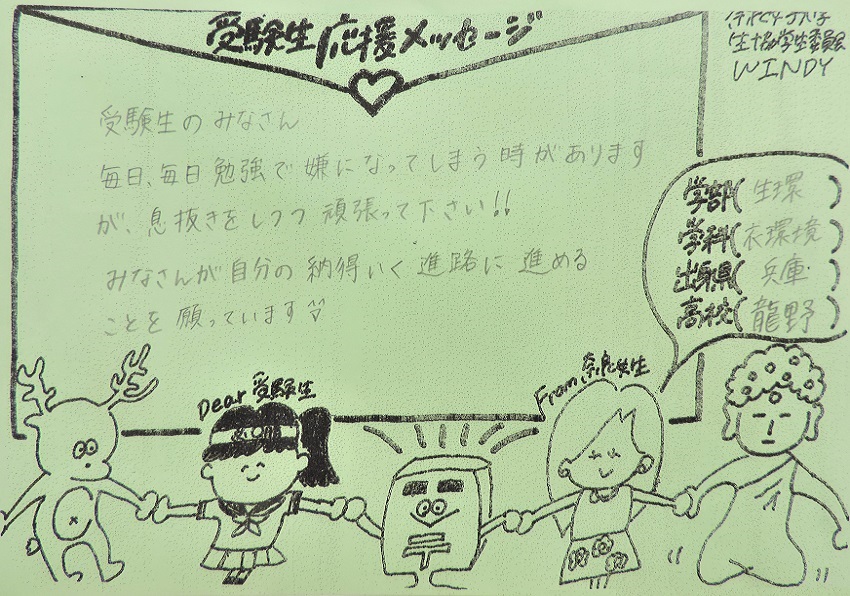 受験生応援メッセージ
生協学生委員会
WINDY
受験生の みなさん
毎日、毎日 勉強で 嫌になってしまう 時があります
が、息抜きをしつつ 頑張って下さい!!
みなさんが 自分の 納得いく 進路に 進める
ことを 願っています
学部(生環)
学科(衣環境)
出身県(兵庫)
高校(龍野)
Dear 受験生
From 奈良女生